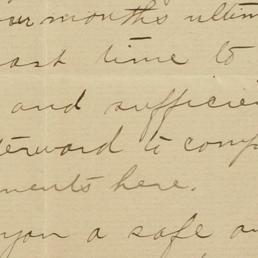 our months ultim
ast time to
and sufficie
terward to comp
ments here.
you a safe an